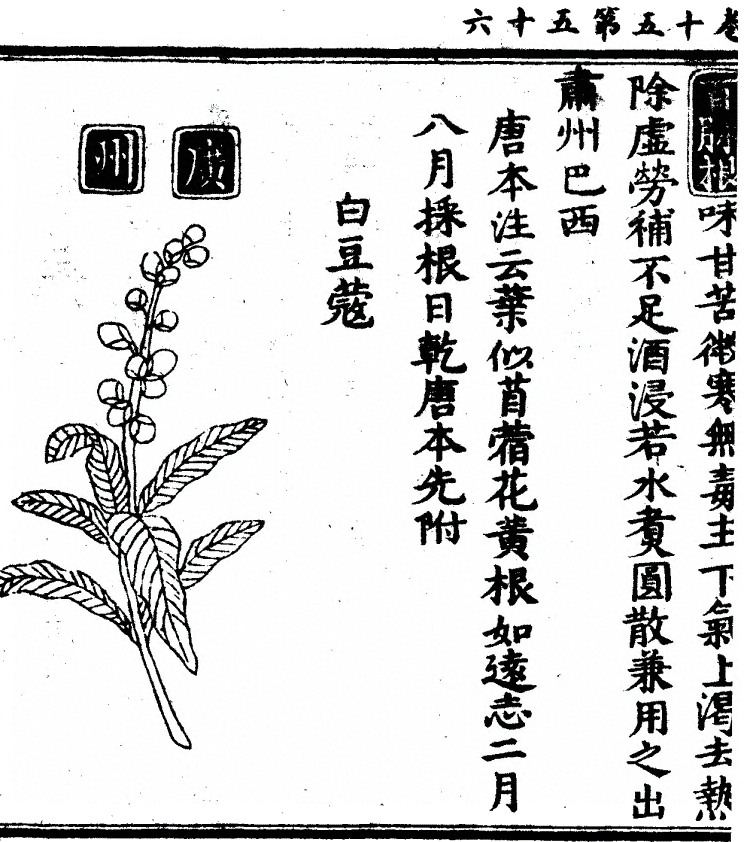 卷十五第五十六
百脉根味甘苦微寒無毒主下氣止渴去熱
除虛勞補不足酒浸若水煮圓散兼用之出
肅州巴西
唐本注云葉似苜蓿花黃根如遠志二月
八月採根日乾唐本先附
白豆蔻
廣州